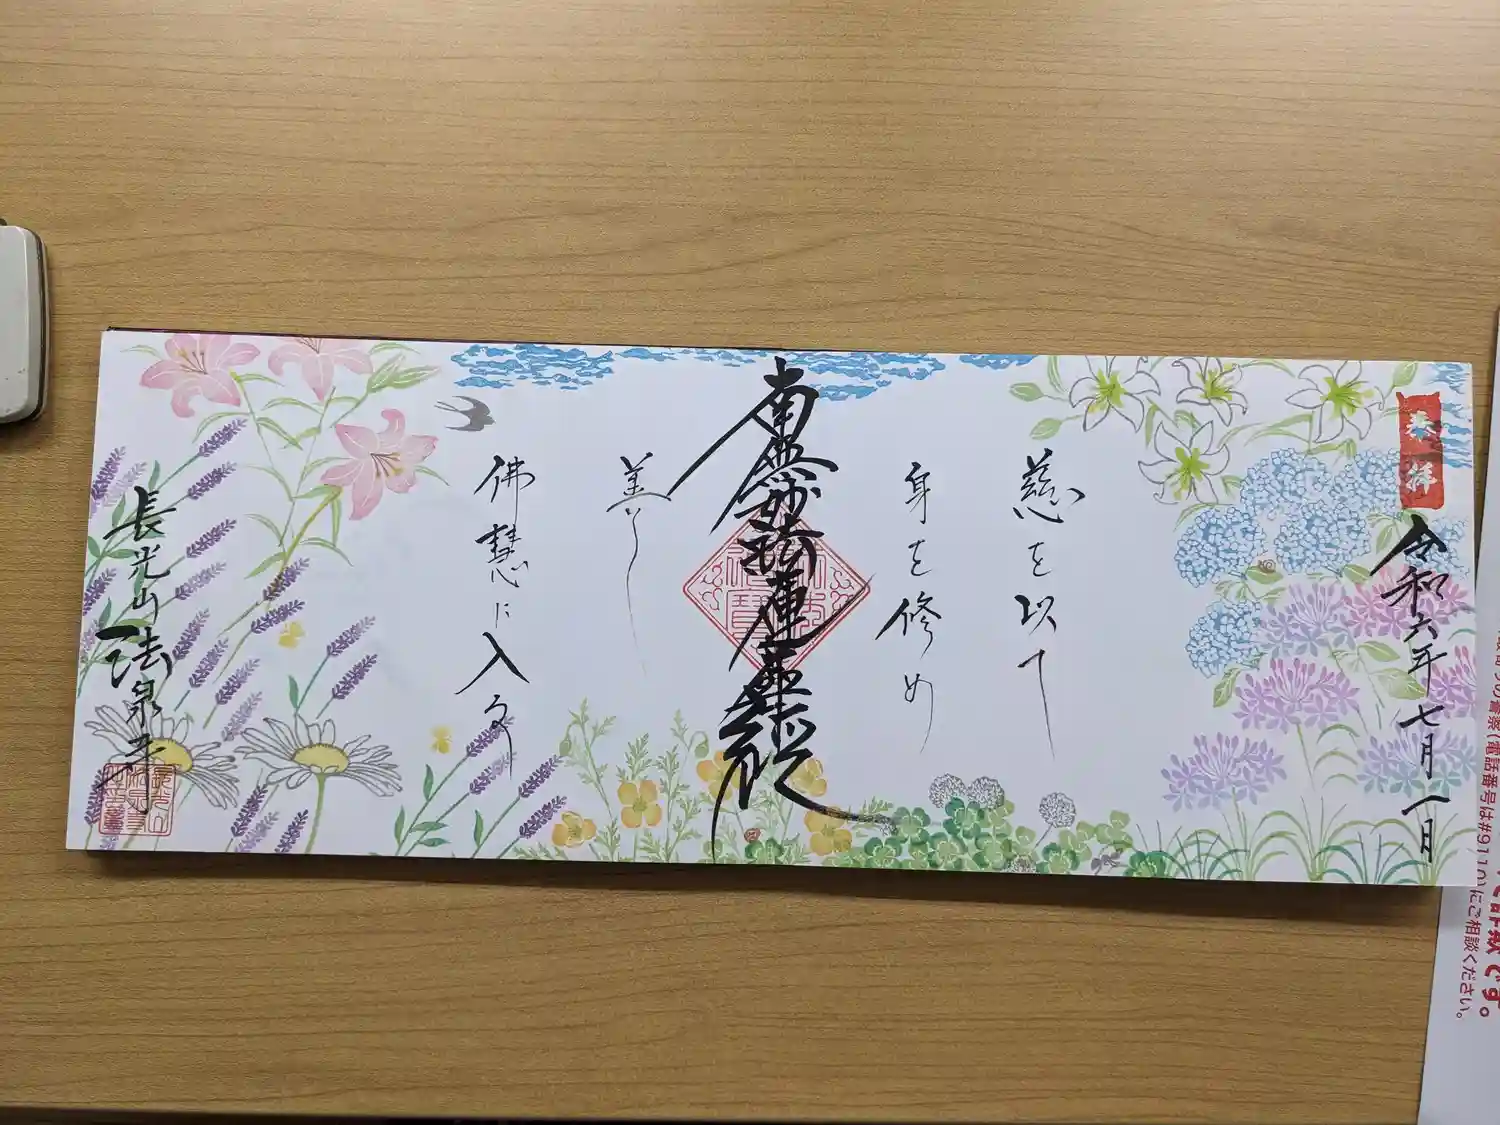 奉拝
令和六年七月一日
慈を以て
身を修め
南無妙法蓮華経
善く
佛慧に入る
長光山法泉寺
の警察(電話番号は#9110)にご相談ください。
詐欺です。